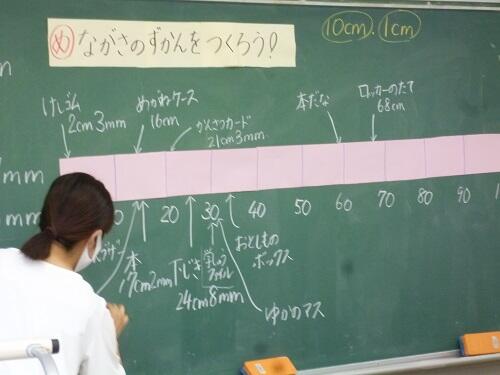 め ながさのずかんをつくろう!
10cm . 1cm
m
けしゴム
2cm 3mm
めがねケース
16cm
かんさつカード
21cm 3mm
本だな
ロッカーのたて
68cm
mm
mm
0 20 30 40 50 60 70 80 90 1
ブザー
本
17cm 2mm
下じき
24cm 8mm
ファイル
おとしもの
ボックス
ゆかのマス